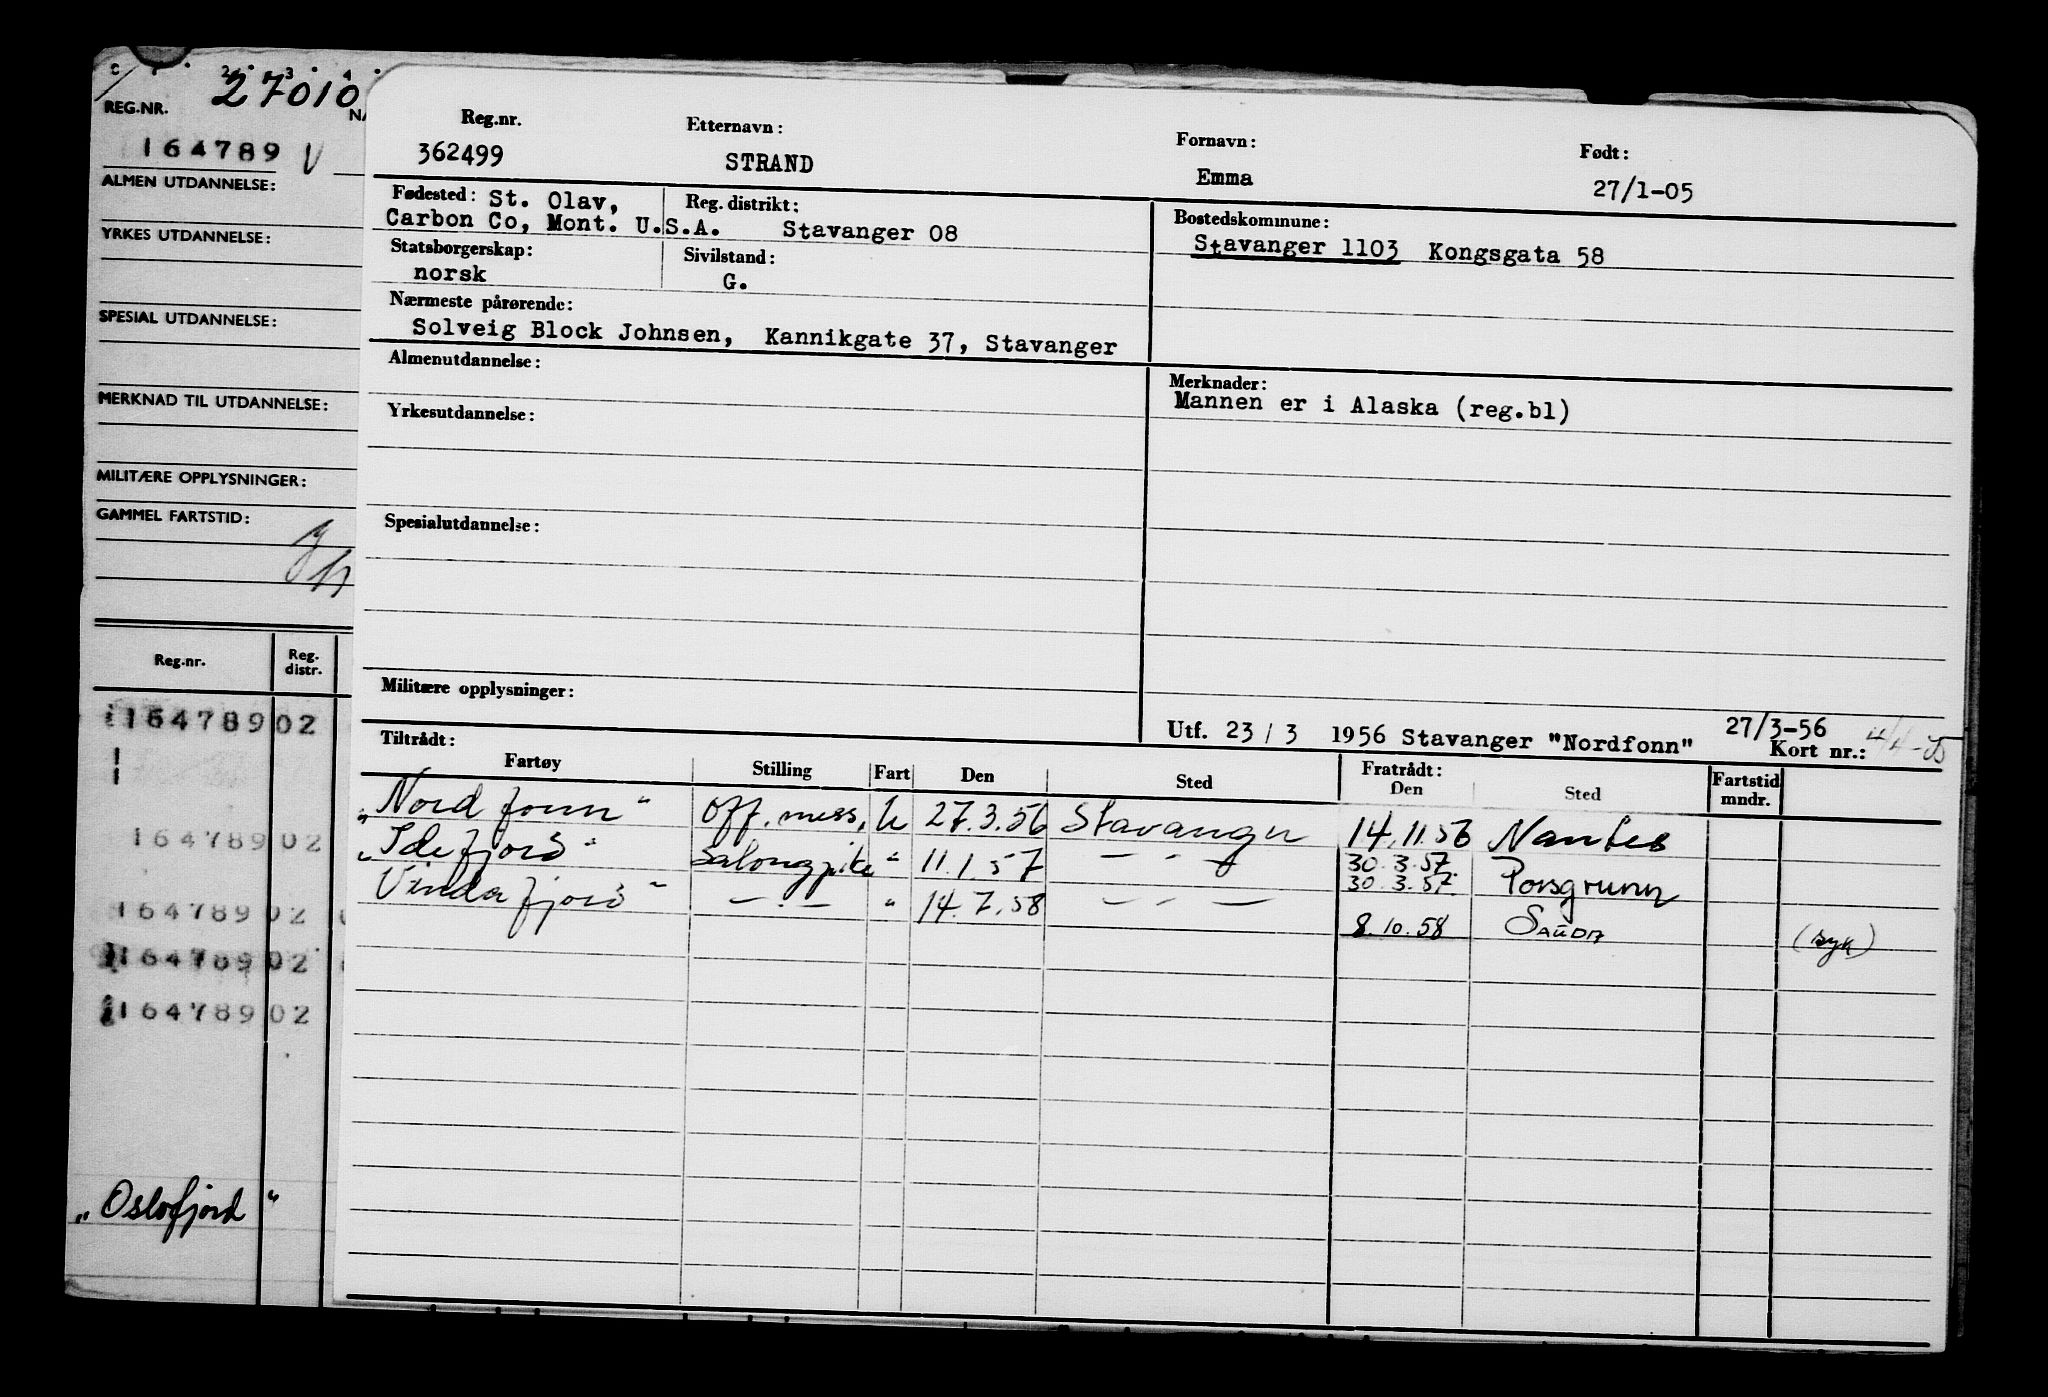 C 1 2 3 4
27010
REG.NR.
164789 V
ALMEN UTDANNELSE:
YRKES UTDANNELSE:
SPESIAL UTDANNELSE:
MERKNAD TIL UTDANNELSE:
MILITÆRE OPPLYSNINGER:
GAMMEL FARTSTID:
Reg.nr. Reg. distr.
164789 02
164789 02
164789 02
164789 02
164789 02
"Oslofjord"
Reg.nr. Etternavn: Fornavn: Født:
362499 STRAND Emma 27/1-05
Fødested: St. Olav, Reg. distrikt: Bostedskommune:
Carbon Co, Mont. U.S.A. Stavanger 08 Stavanger 1103 Kongsgata 58
Statsborgerskap: Sivilstand:
norsk G.
Nærmeste pårørende:
Solveig Block Johnsen, Kannikgate 37, Stavanger
Almenutdannelse: Merknader:
Mannen er i Alaska (reg.bl)
Yrkesutdannelse:
Spesialutdannelse:
Militære opplysninger:
27/3-56
Utf. 23/3 1956 Stavanger "Nordfonn" Kort nr.:
Tiltrådt: Fratrådt:
Fartøy Stilling Fart Den Sted Den Sted Fartstid mndr.
"Nordfonn" Off. mess. U 27.3.56 Stavanger 14.11.56 Nantes
"Idefjord" Salongpike " 11.1.57 — " — 30.3.57
30.3.57 Porsgrunn
Vindafjord" — " — " 14.7.58 — " —
8.10.58 SAUDA (syk)